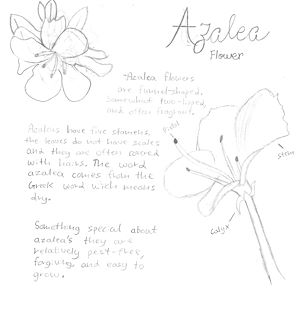 Azalea
Flower
Azalea flowers
are funnel-shaped,
somewhat two-lipped,
and often fragrant.
Azaleas have five stamens,
the leaves do not have scales
and they are often covered
with hairs. The word
azalea comes from the
Greek word which means
dry.
Pistil
stem
calyx
Something special about
azalea's they are
relatively pest-free,
forgiving, and easy to
grow.